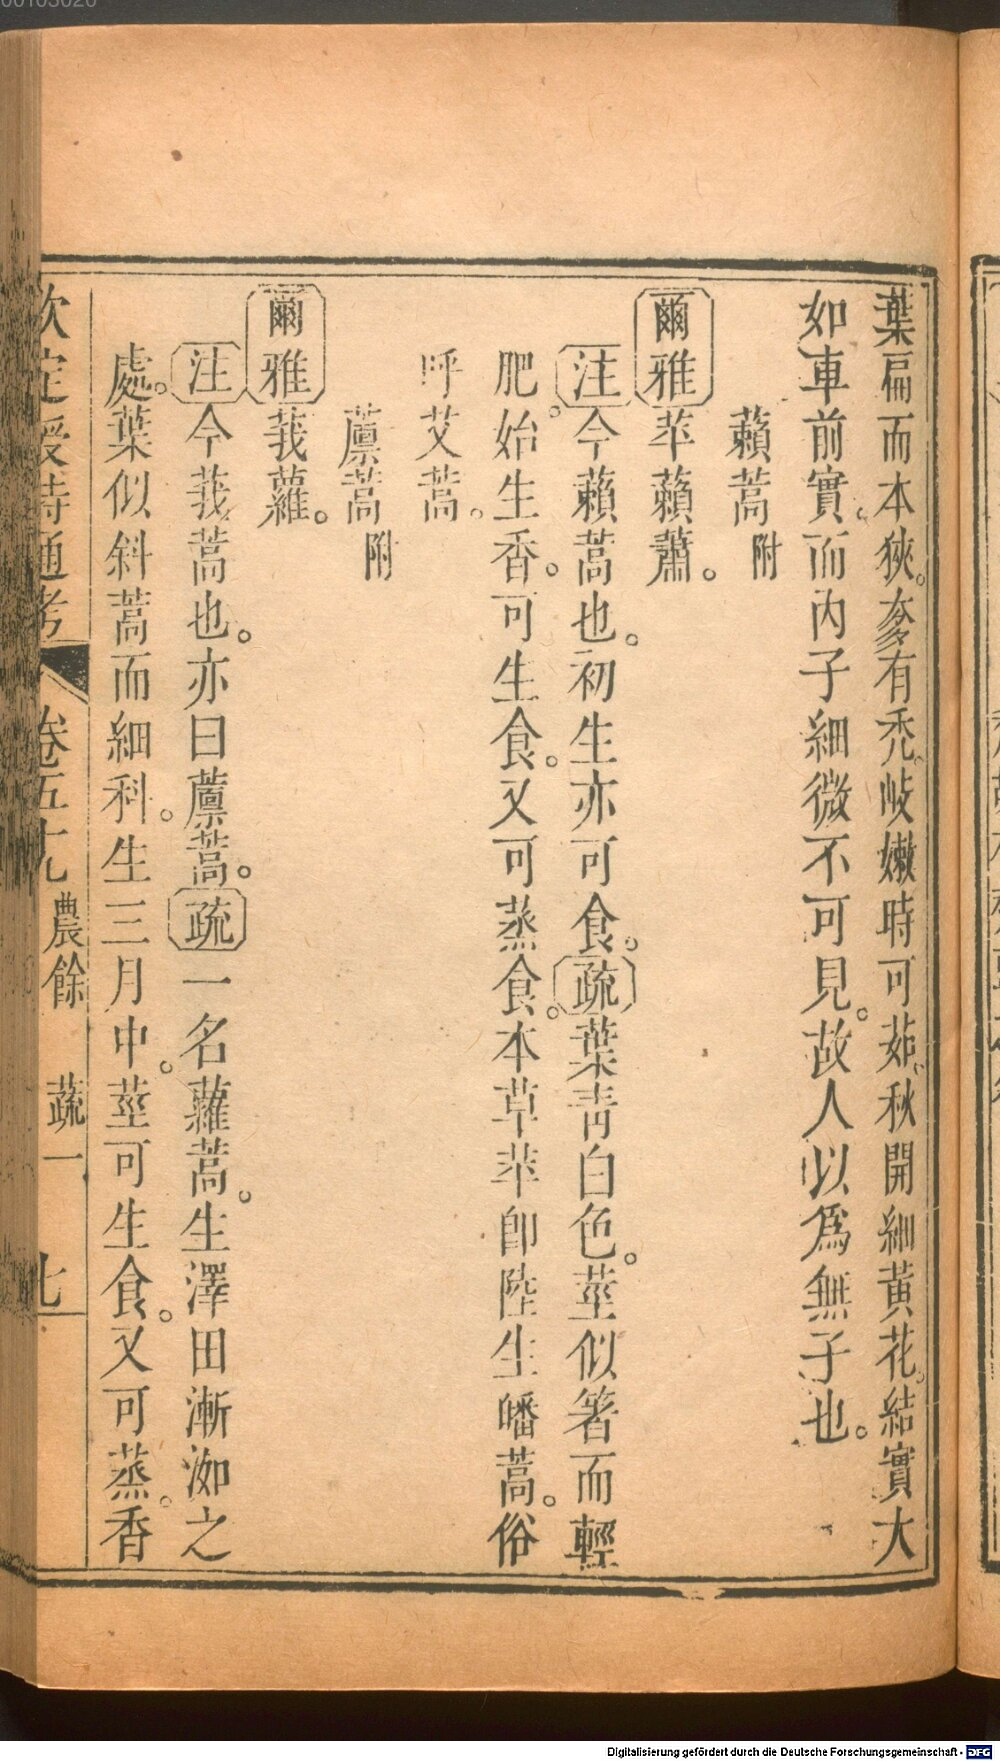 葉扁而本狹。奓有禿。岐嫩時可茹。秋開細黃花。結實大
如車前實。而內子細微不可見。故人以爲無子也。
藾蒿附
爾雅苹藾蕭。
注今藾蒿也。初生亦可食。疏葉青白色。莖似箸而輕
肥。始生香。可生食。又可蒸食。本草苹卽陸生皤蒿。俗
呼艾蒿。
藘蒿附
爾雅莪蘿。
注今莪蒿也。亦曰藘蒿。疏一名蘿蒿。生澤田漸洳之
處。葉似斜蒿而細科。生三月中。莖可生食。又可蒸。香
欽定授時通考 卷五十九 農餘 蔬一 七
00103020
Digitalisierung gefördert durch die Deutsche Forschungsgemeinschaft - DFG